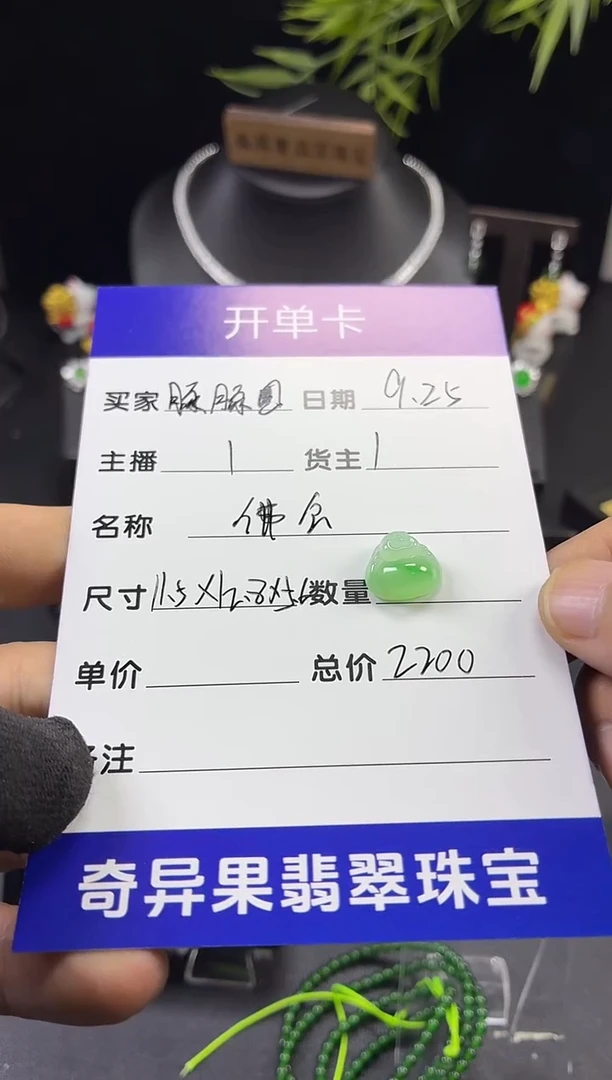 开单卡
买家 脉脉 日期 9.25
主播 1 货主 1
名称 佛公
尺寸 11.5×12.8×5.6 数量
单价 总价 2200
备注
奇异果翡翠珠宝